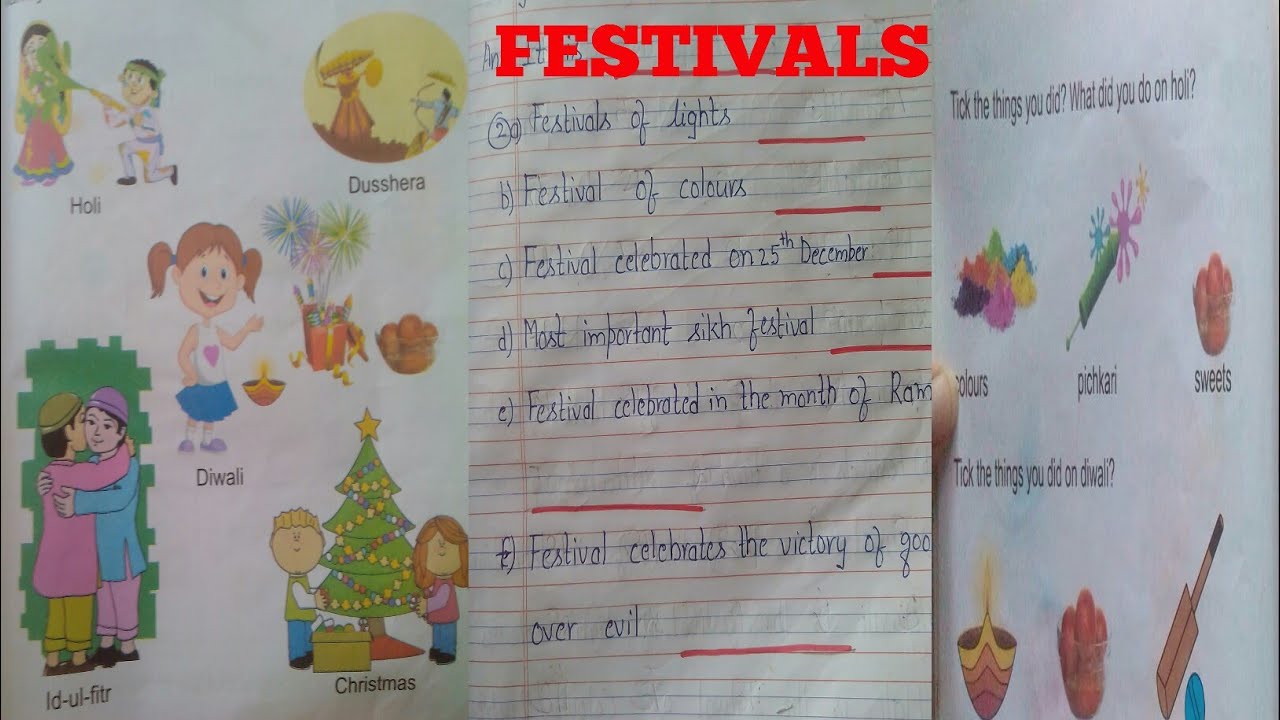 FESTIVALS
Holi
Dusshera
Diwali
Id-ul-fitr
Christmas
② a) Festivals of lights
b) Festival of colours
c) Festival celebrated on 25th December
d) Most important sikh festival
e) Festival celebrated in the month of Ram
f) Festival celebrates the victory of goo
over evil
Tick the things you did? What did you do on holi?
colours
pichkari
sweets
Tick the things you did on diwali?